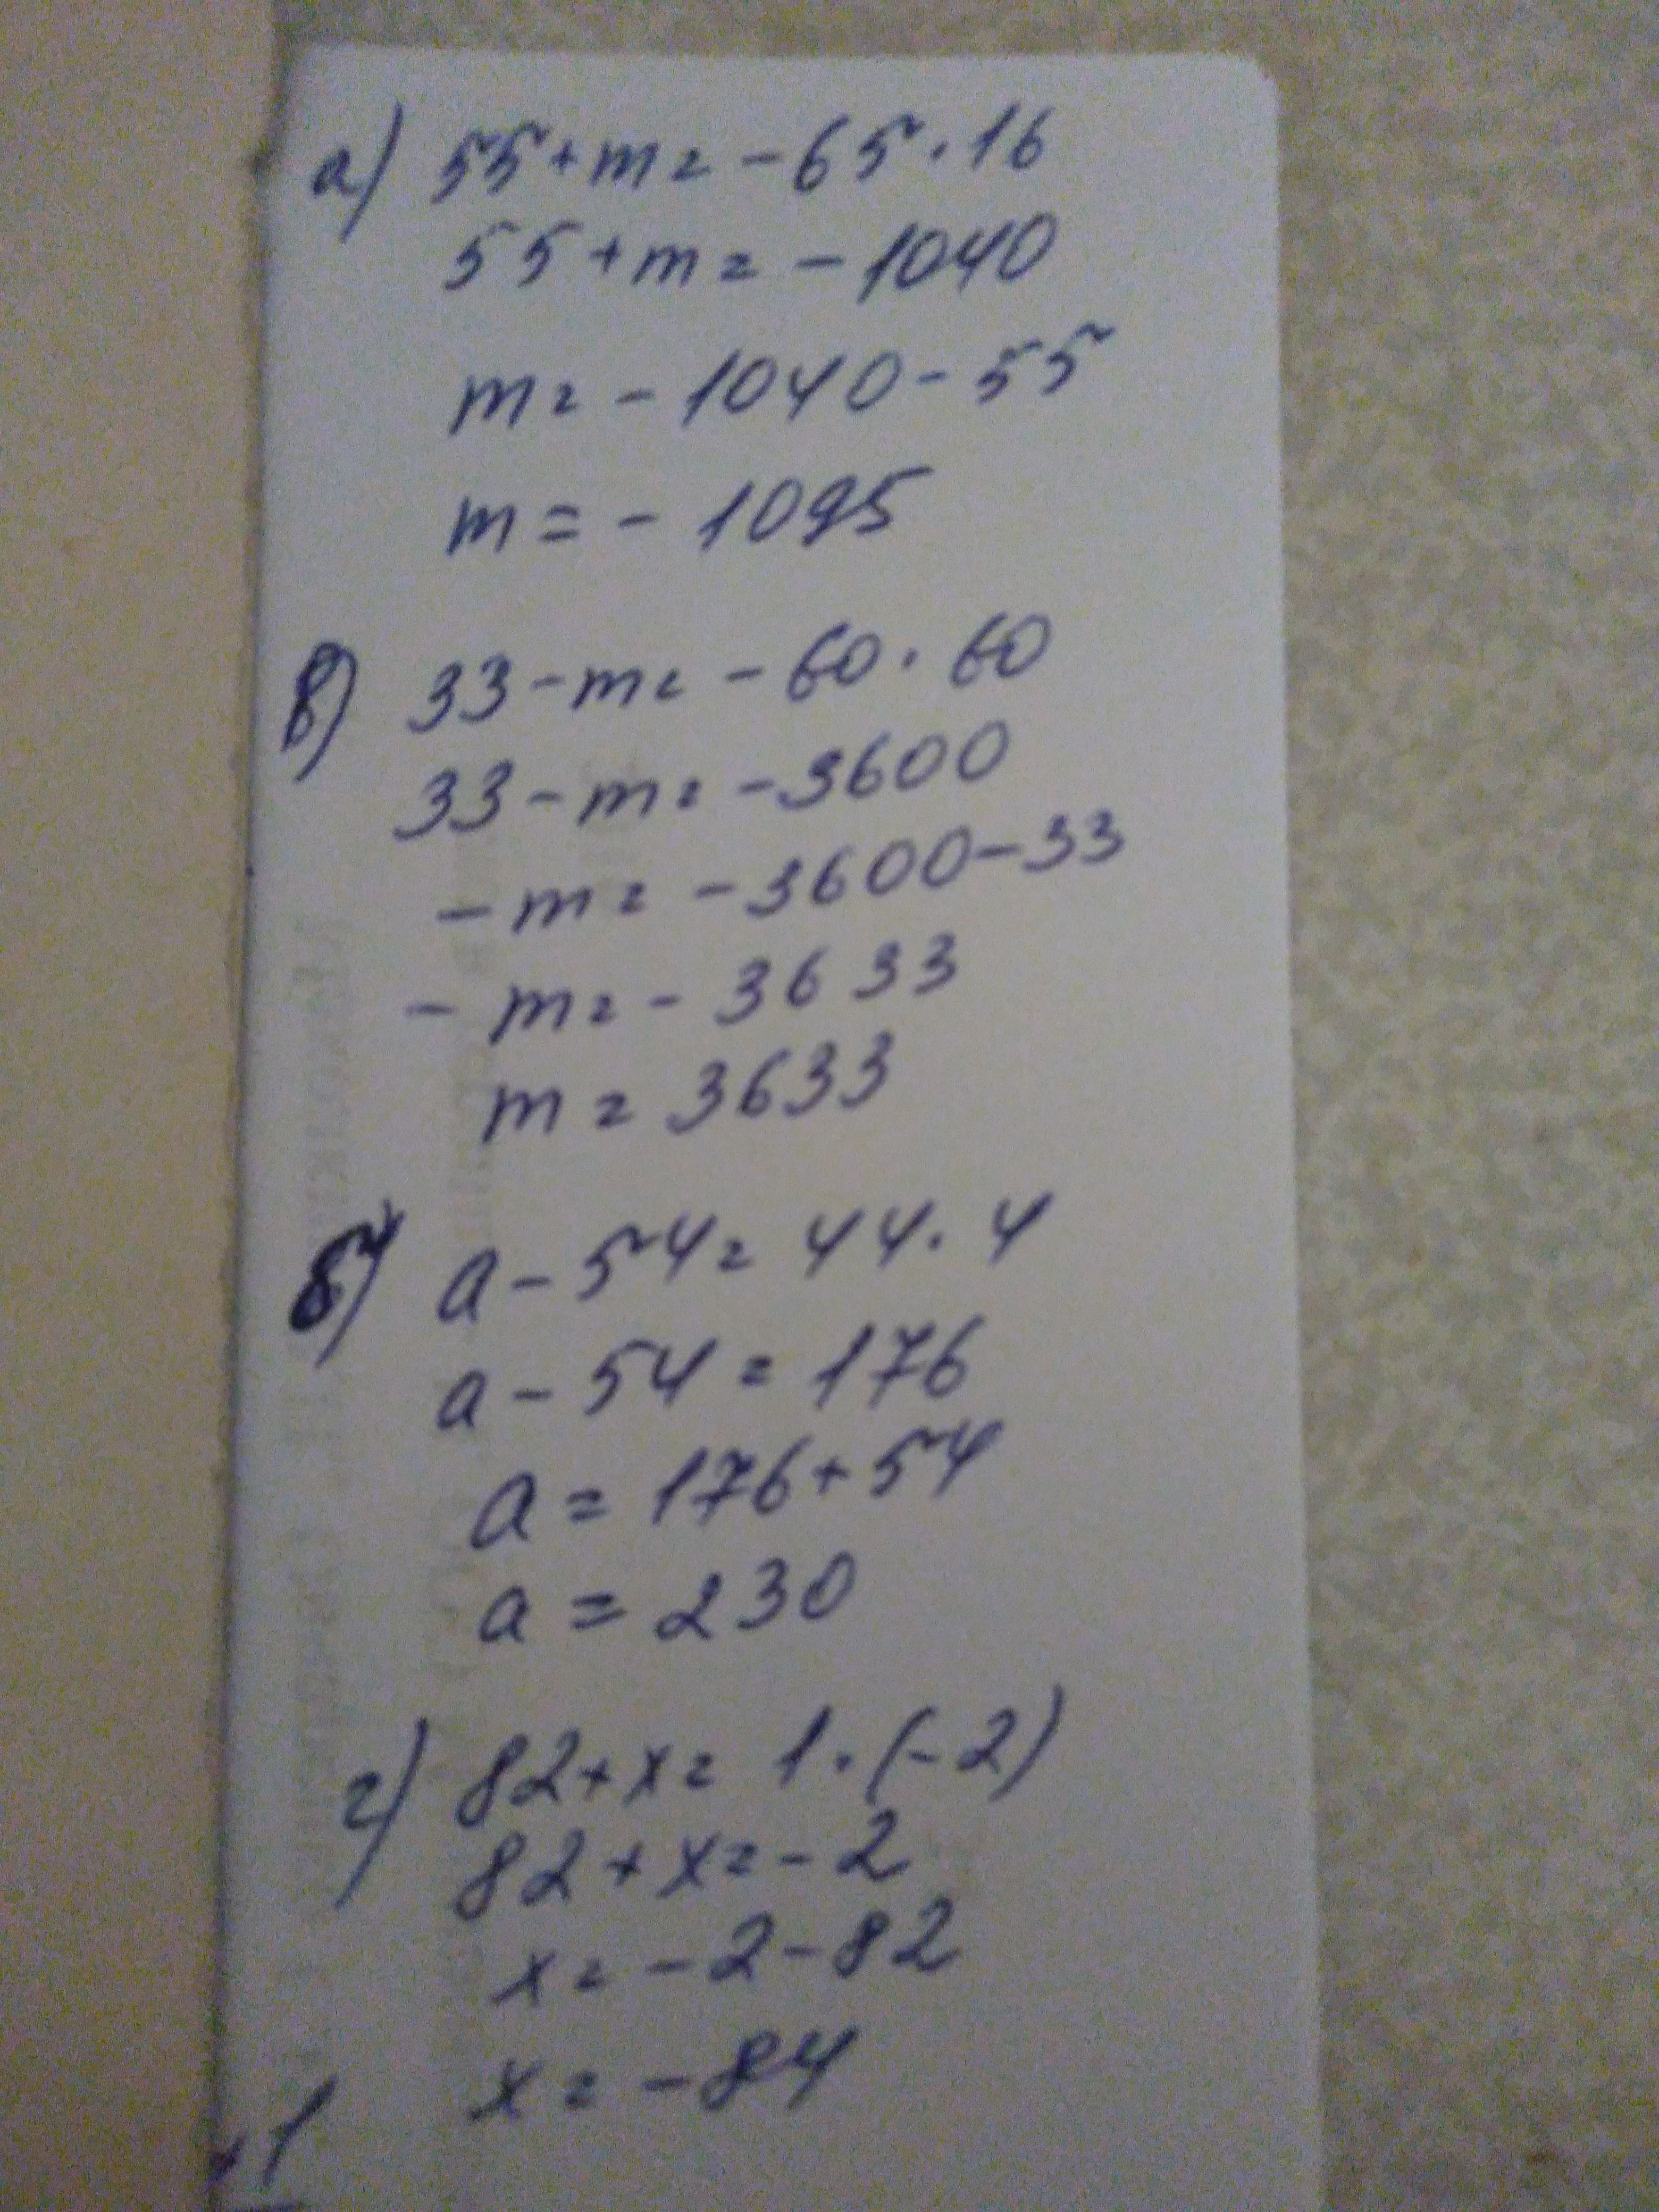 а) 55+m=-65·16
55+m=-1040
m=-1040-55
m=-1095
в) 33-m=-60·60
33-m=-3600
-m=-3600-33
-m=-3633
m=3633
б) a-54=44·4
a-54=176
a=176+54
a=230
г) 82+x=1·(-2)
82+x=-2
x=-2-82
x=-84
1